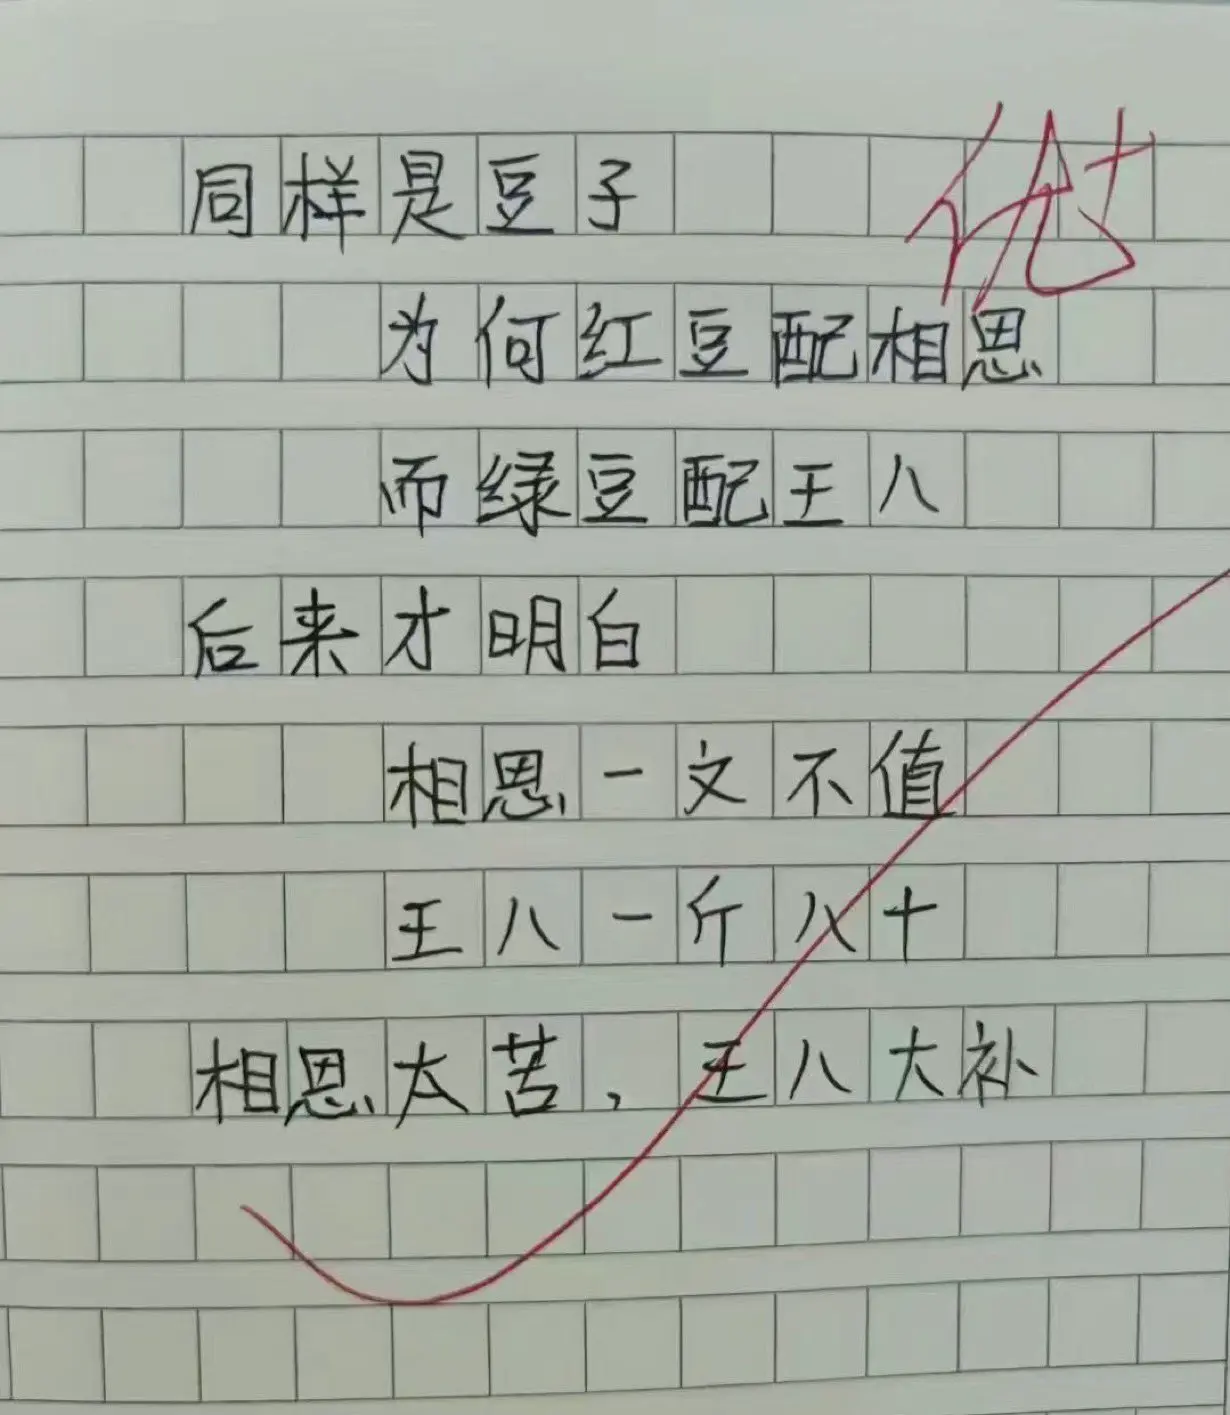 优
同样是豆子
为何红豆配相思
而绿豆配王八
后来才明白
相思一文不值
王八一斤八十
相思太苦,王八大补